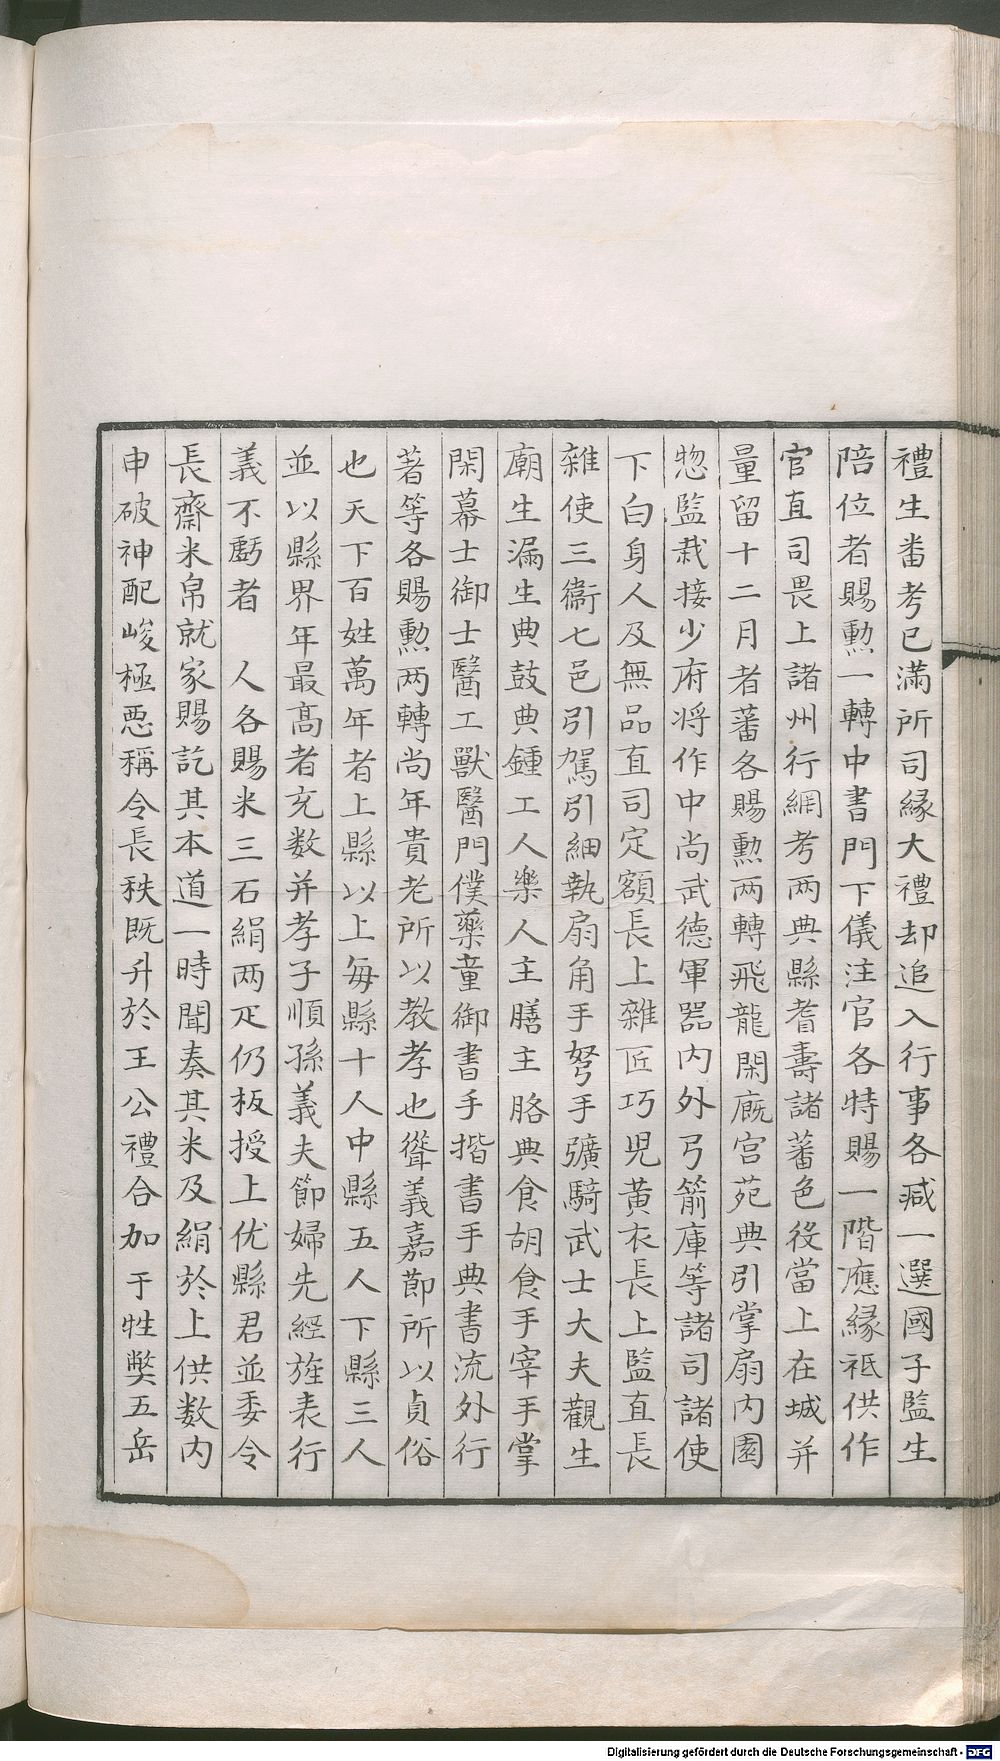 禮生畨考已滿所司緣大禮却追入行事各減一選國子監生
陪位者賜勲一轉中書門下儀注官各特賜一階應緣祗供作
官直司畏上諸州行綱考两典縣耆壽諸蕃色役當上在城并
量留十二月者蕃各賜勲两轉飛龍閑廐宫苑典引掌扇内園
惣監栽接少府将作中尚武德軍器内外弓箭庫等諸司諸使
下白身人及無品直司定額長上雜匠巧児黄衣長上監直長
雜使三衞七邑引駕引細執扇角手弩手彍騎武士大夫觀生
廟生漏生典鼓典鍾工人樂人主膳主胳典食胡食手宰手掌
閑幕士御士醫工獸醫門僕藥童御書手揩書手典書流外行
著等各賜勲两轉尚年貴老所以教孝也聳義嘉節所以貞俗
也天下百姓萬年者上縣以上每縣十人中縣五人下縣三人
並以縣界年最髙者充数并孝子順孫義夫節婦先經旌表行
義不虧者 人各賜米三石絹两疋仍板授上优縣君並委令
長齋米帛就家賜訖其本道一時聞奏其米及絹於上供数内
申破神配峻極惡稱令長秩既升於王公禮合加于牲獘五岳
Digitalisierung gefördert durch die Deutsche Forschungsgemeinschaft - DFG